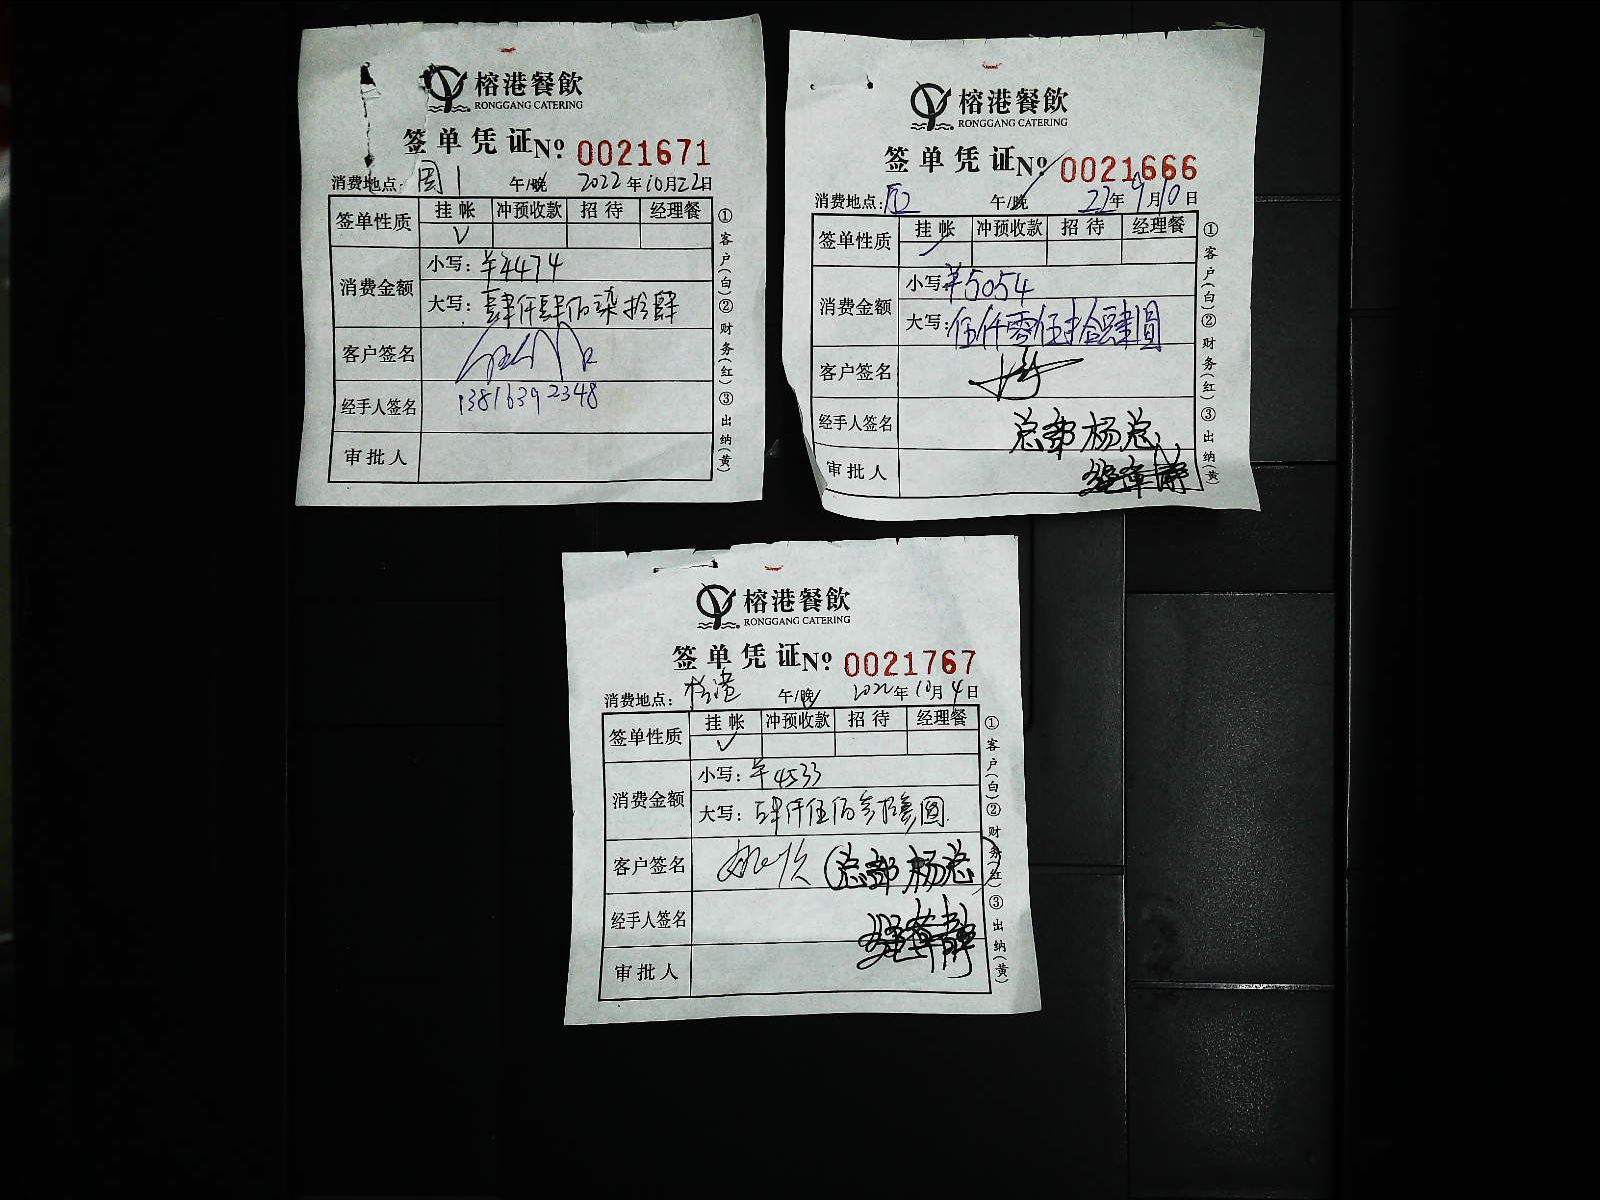 榕港餐飲
RONGGANG CATERING
签单凭证 Nº 0021671
消费地点: 周1 午/晚 2022年10月22日
签单性质 挂帐 冲预收款 招待 经理餐
√
消费金额 小写: ¥4474
大写: 肆仟肆佰柒拾肆
客户签名
经手人签名 13816392348
审批人
①客户(白)②财务(红)③出纳(黄)
榕港餐飲
RONGGANG CATERING
签单凭证 Nº 0021666
消费地点: 午/晚 22年9月10日
签单性质 挂帐 冲预收款 招待 经理餐
消费金额 小写: ¥5054
大写: 伍仟零伍拾肆圆
客户签名
经手人签名 总部杨总
审批人
①客户(白)②财务(红)③出纳(黄)
榕港餐飲
RONGGANG CATERING
签单凭证 Nº 0021767
消费地点: 榕港 午/晚 2022年10月4日
签单性质 挂帐 冲预收款 招待 经理餐
√
消费金额 小写: ¥4533
大写: 肆仟伍佰叁拾叁圆
客户签名 (总部杨总)
经手人签名
审批人
①客户(白)②财务(红)③出纳(黄)